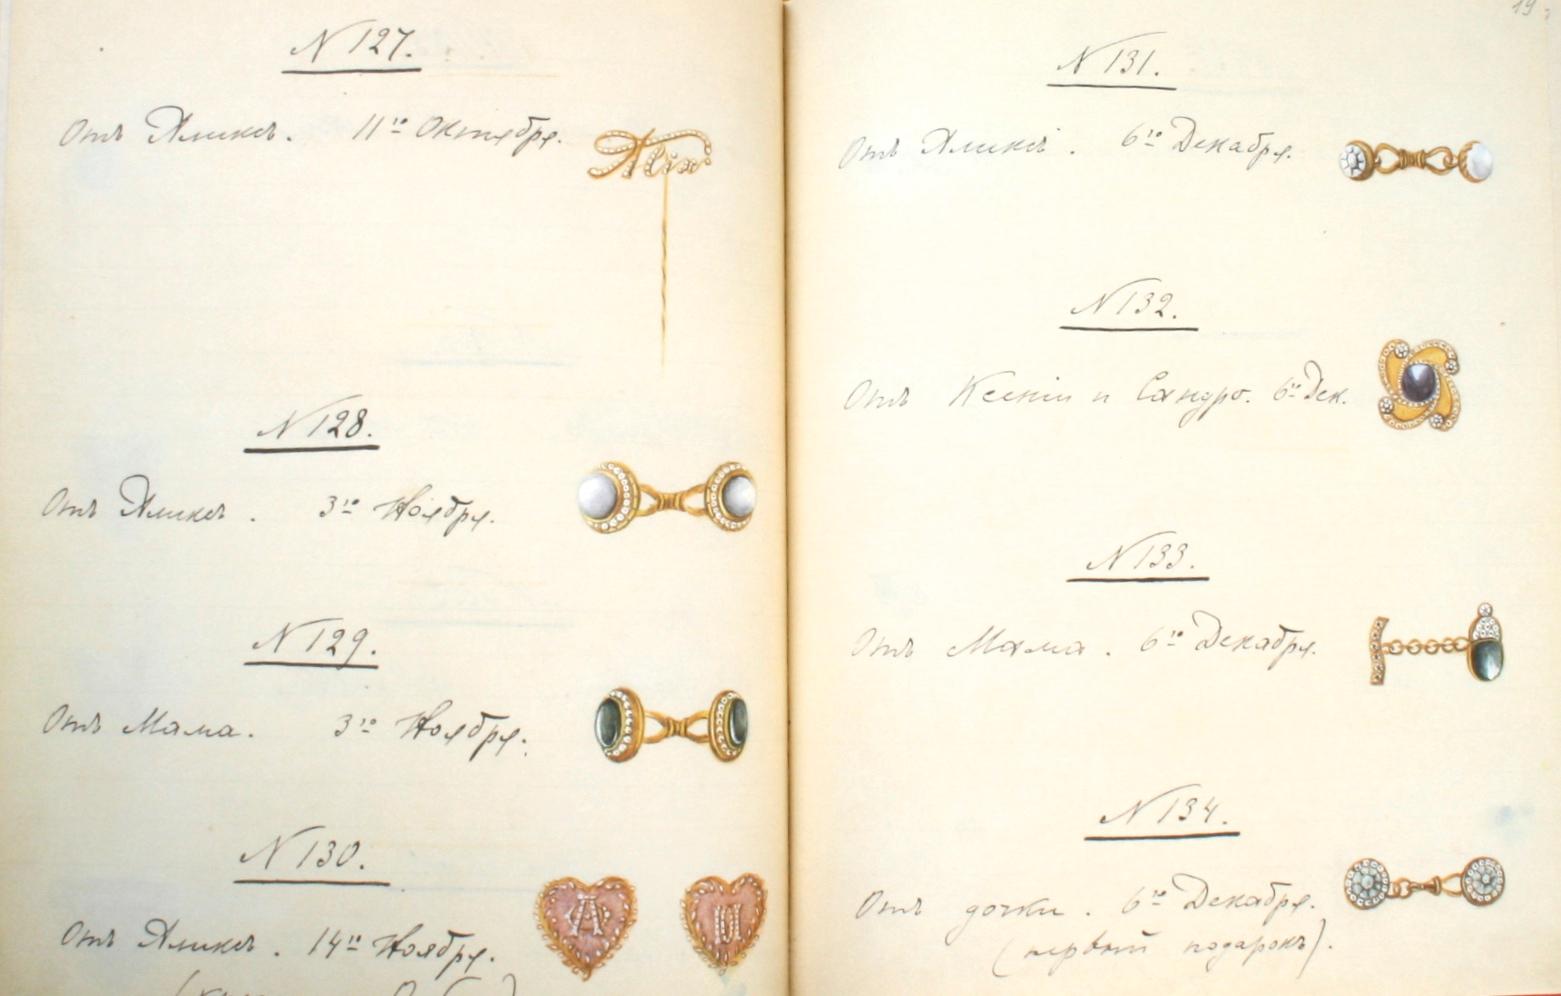 N 127.
Отъ Аликсъ. 11го Октября.
Alix
N 128.
Отъ Аликсъ. 3го Ноября.
N 129.
Отъ Мама. 3го Ноября.
N 130.
Отъ Аликсъ. 14го Ноября.
А
N 131.
Отъ Аликсъ. 6го Декабря.
N 132.
Отъ Ксеніи и Сандро. 6го Дек.
N 133.
Отъ Мама. 6го Декабря.
N 134.
Отъ дочки. 6го Декабря.
(первый подарокъ).